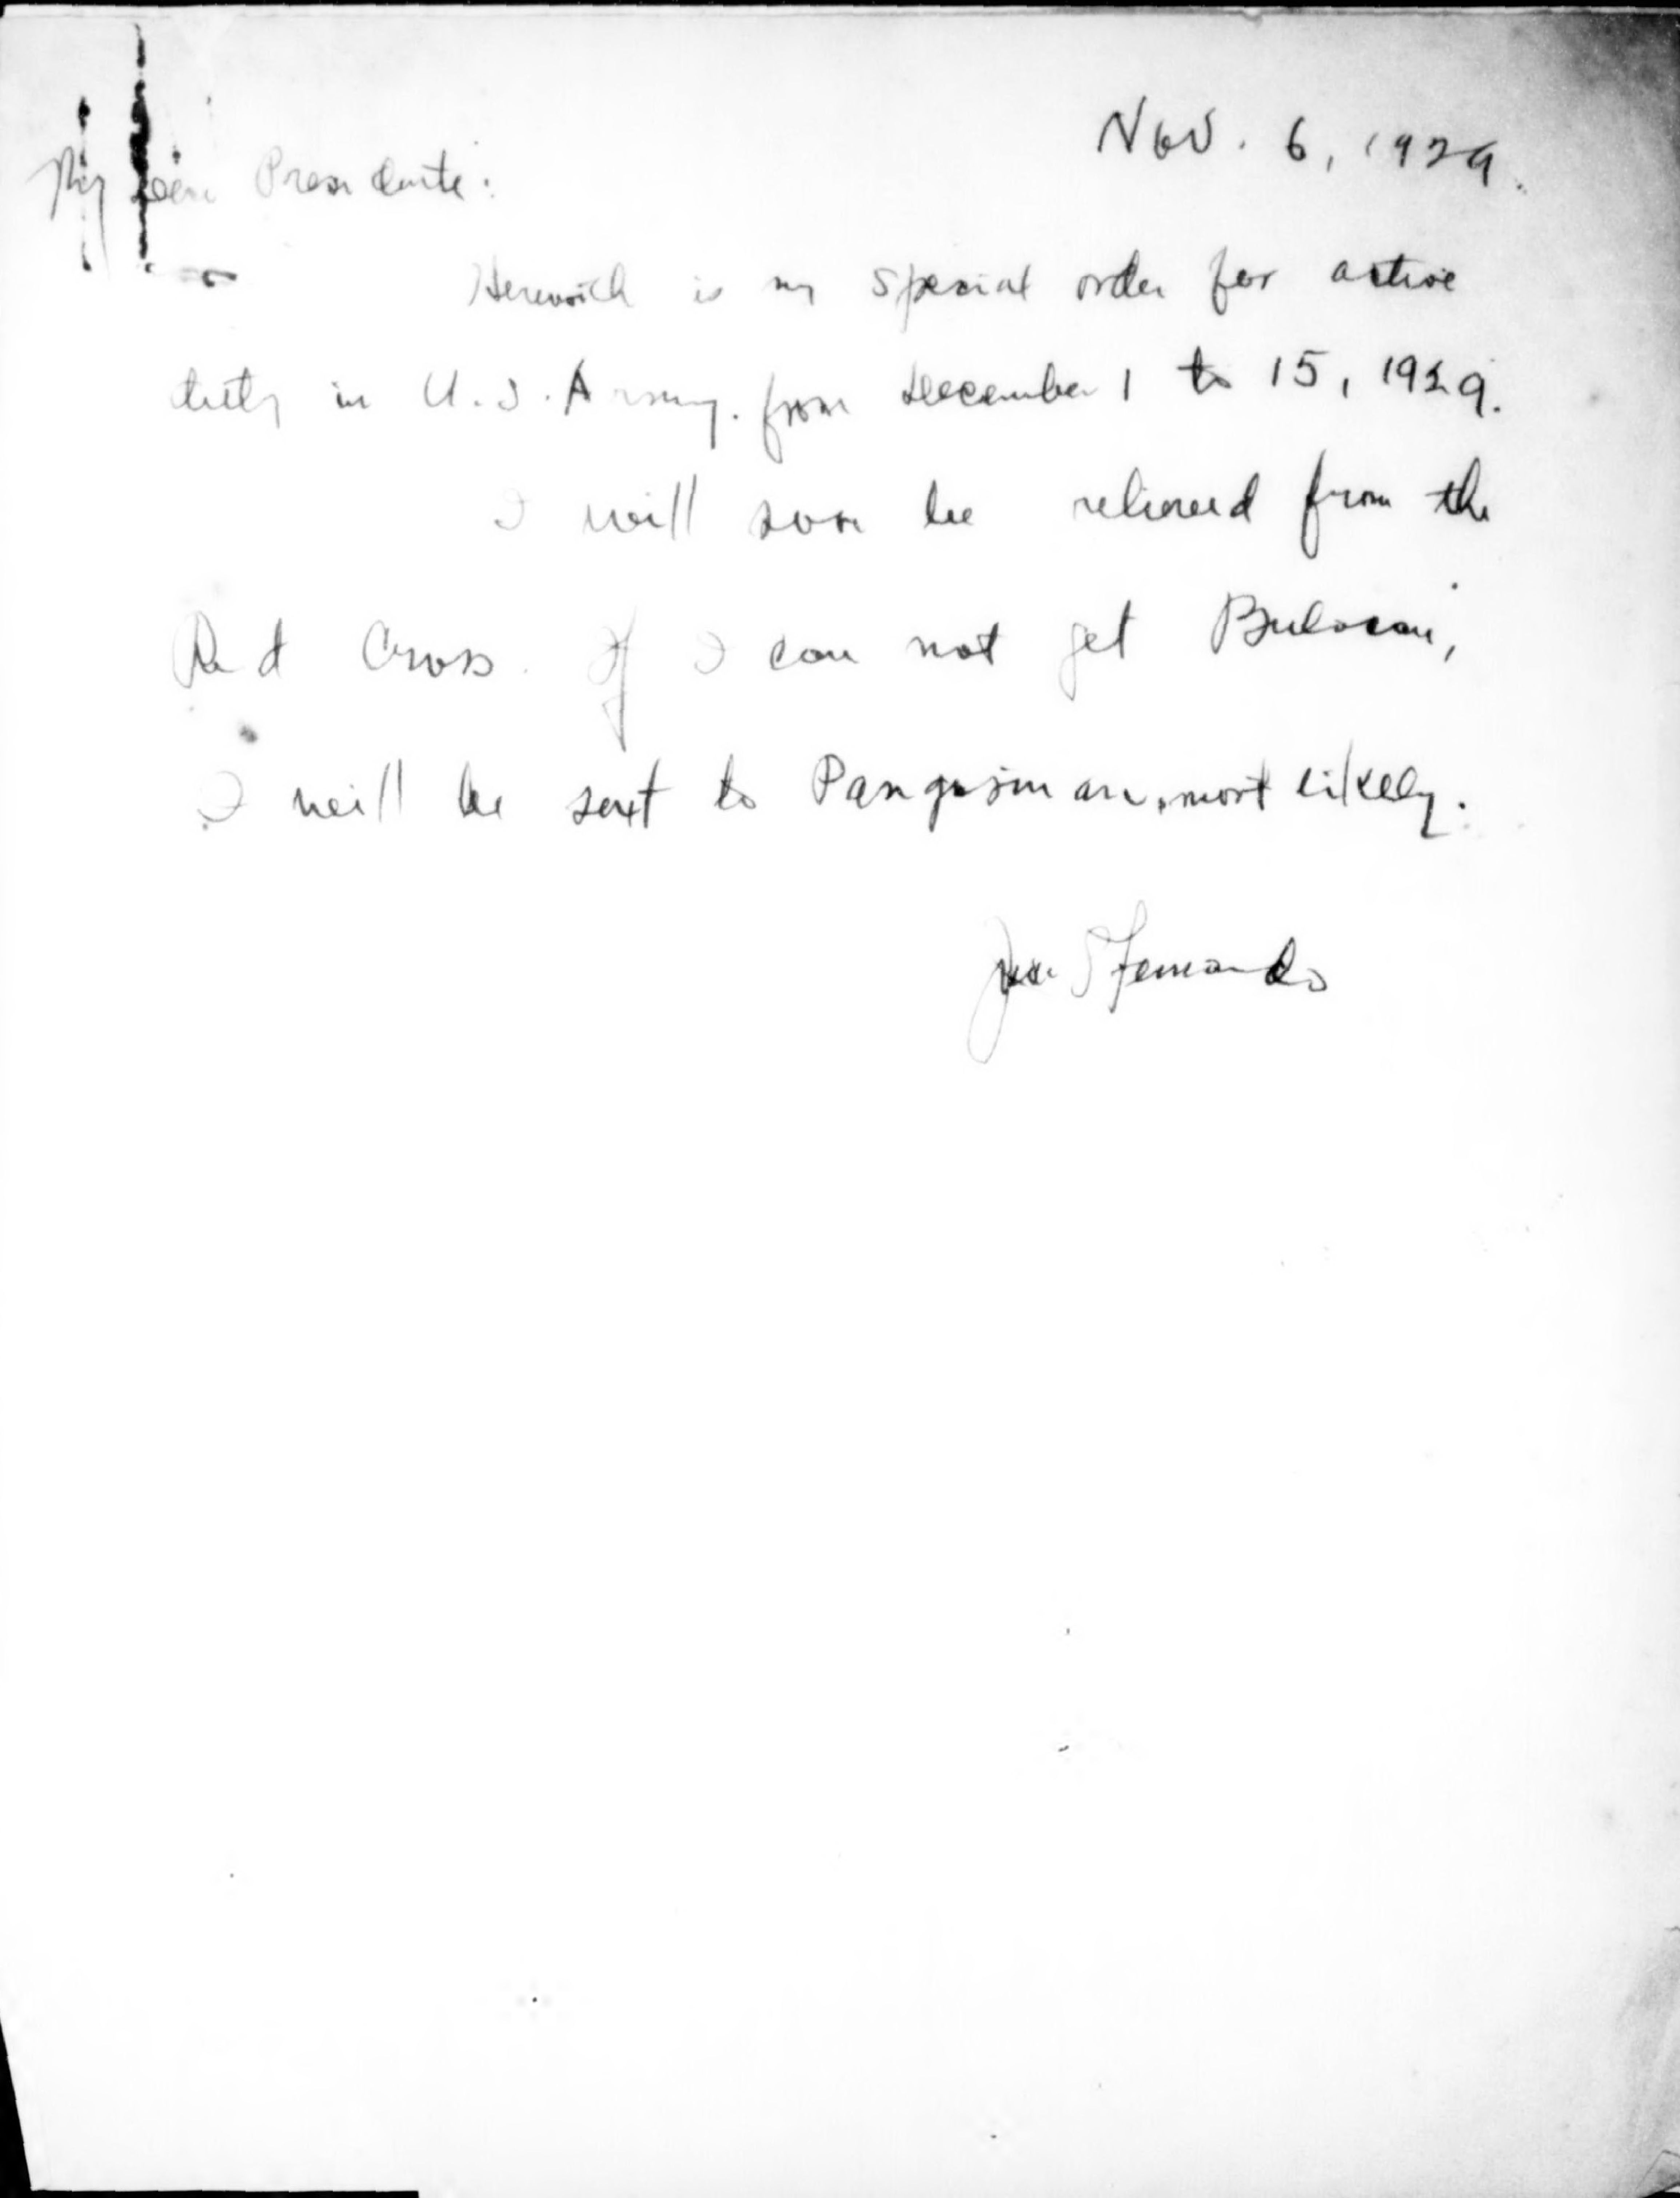 Nov. 6, 1929.
My Dear Presidente:
Herewith is my special order for active
duty in U.S. Army. from December 1 to 15, 1929.
I will soon be relieved from the
Red Cross. If I can not get Bulacan,
I will be sent to Pangasinan, most likely.
Jose S Fernando